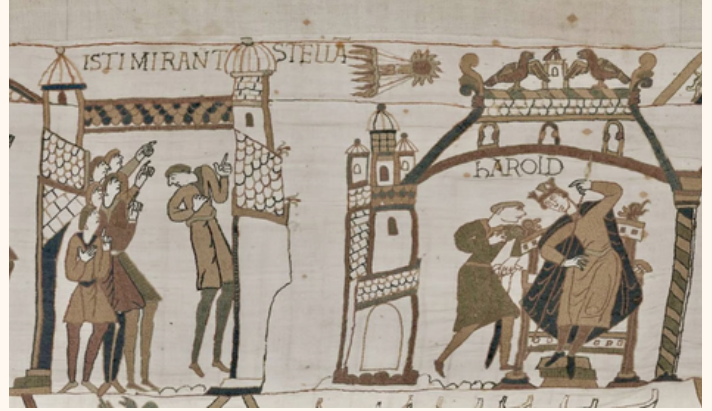 ISTI MIRANT STELLĀ
hAROLD